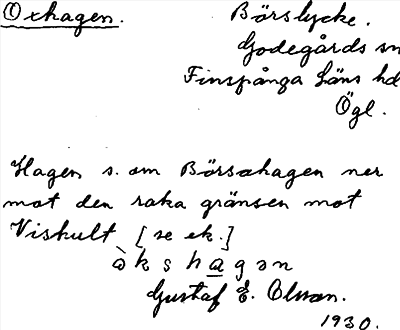 Oxhagen. Börslycke.
Godegårds sn
Finspånga läns hd
Ögl.
Hagen s. om Börsahagen ner
mot den raka gränsen mot
Viskult [se ek.]
òkshagən
Gustaf E. Olsson.
1930.